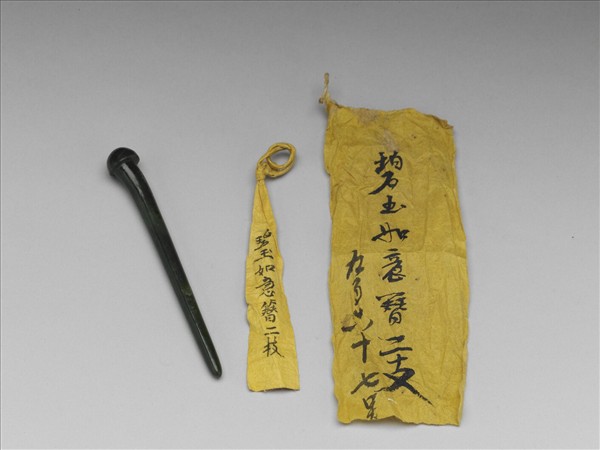 碧玉如意簪二支
九百六十七号
碧玉如意簪二枝